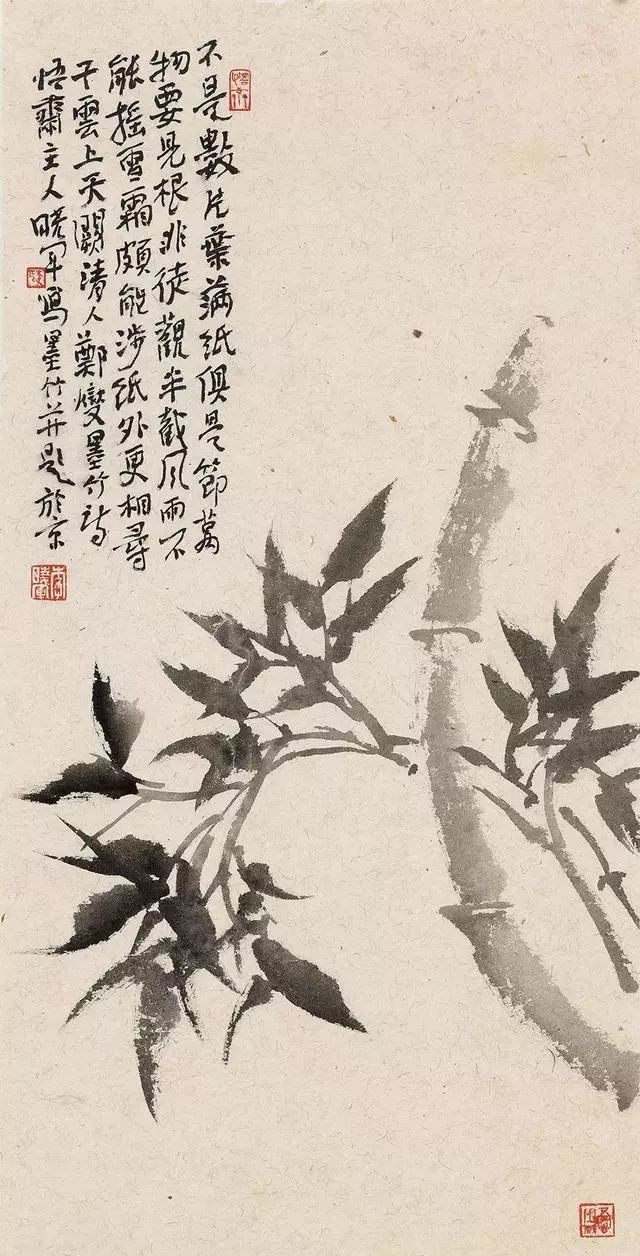 不是數片葉滿紙俱是節萬
物要見根非徒觀半截風雨不
能搖雪霜頗能涉紙外更相尋
干雲上天闕清人鄭燮墨竹詩
悟齋主人曉軍寫墨竹并題於京
李曉軍